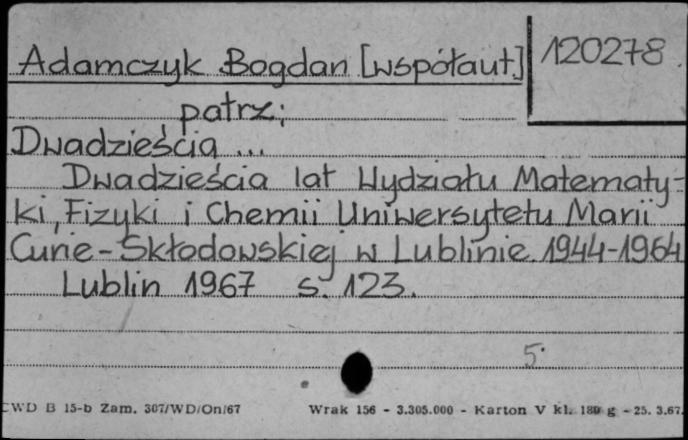 Adamczyk Bogdan [współaut.] 120278
patrz:
Dwadzieścia ...
Dwadzieścia lat Wydziału Matematy-
ki, Fizyki i Chemii Uniwersytetu Marii
Curie-Skłodowskiej w Lublinie. 1944-1964
Lublin 1967 s. 123.
5.
CWD B 15-b Zam. 307/WD/On/67 Wrak 156 - 3.305.000 - Karton V kl. 180 g - 25. 3.67.